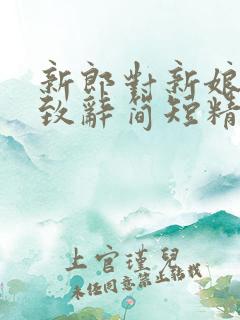 新郎對新娘
致辭簡短精
上官瑾兒
未经同意禁止転載